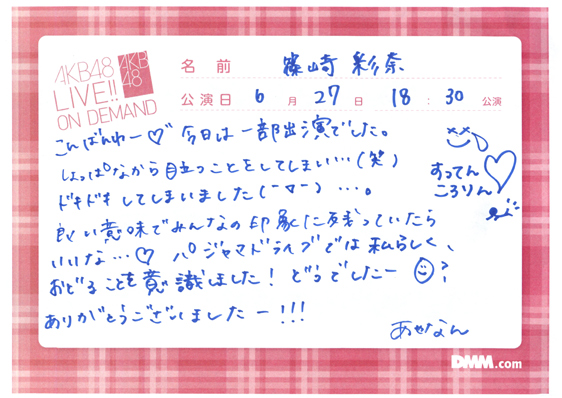 AKB48
LIVE!!
ON DEMAND
AKB
48
名前 篠崎 彩奈
公演日 6月 27日 18:30 公演
こんばんゆー♡ 今日は一部出演でした。
しょっぱなから目立つことをしてしまい…(笑)
ドキドキしてしまいました(ー▽ー)…。
良い意味でみんなの印象に残っていたら
いいな…♡ パジャマドライブでは私らしく、
おどることを意識しました! どうでしたー ?
ありがとうございしましたー!!!
すってん
ころりん
あやなん
DMM.com